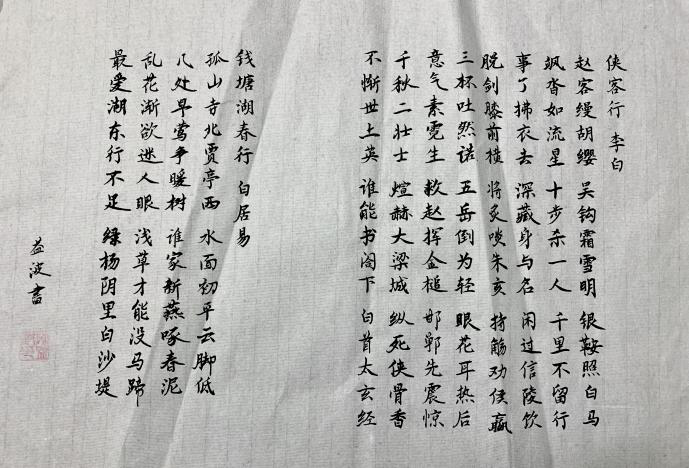 侠客行 李白
赵客缦胡缨 吴钩霜雪明 银鞍照白马
飒沓如流星 十步杀一人 千里不留行
事了拂衣去 深藏身与名 闲过信陵饮
脱剑膝前横 将炙啖朱亥 持觞劝侯嬴
三杯吐然诺 五岳倒为轻 眼花耳热后
意气素霓生 救赵挥金槌 邯郸先震惊
千秋二壮士 煊赫大梁城 纵死侠骨香
不惭世上英 谁能书阁下 白首太玄经
钱塘湖春行 白居易
孤山寺北贾亭西 水面初平云脚低
几处早莺争暖树 谁家新燕啄春泥
乱花渐欲迷人眼 浅草才能没马蹄
最爱湖东行不足 绿杨阴里白沙堤
益波书